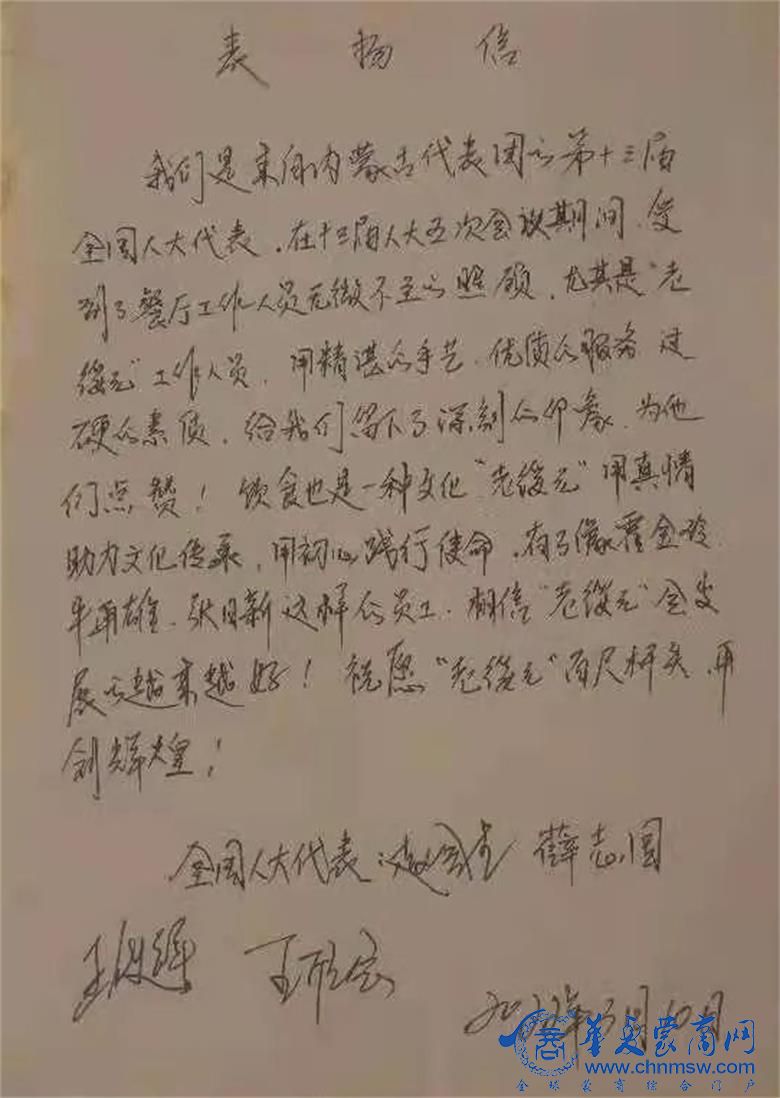 表扬信
我们是来自内蒙古代表团的第十三届
全国人大代表，在十三届人大五次会议期间，受
到了餐厅工作人员无微不至的照顾，尤其是"老
绥元"工作人员，用精湛的手艺、优质的服务、过
硬的素质，给我们留下了深刻的印象，为他
们点赞！饮食也是一种文化"老绥元"用真情
助力文化传承，用初心践行使命，有了像霍金
牛再雄、张日新这样的员工，相信"老绥元"会发
展的越来越好！祝愿"老绥元"百尺杆头，再
创辉煌！
全国人大代表：薛志国
王
2022年3月10日
华文蒙商网
www.chnmsw.com
全球蒙商综合门户